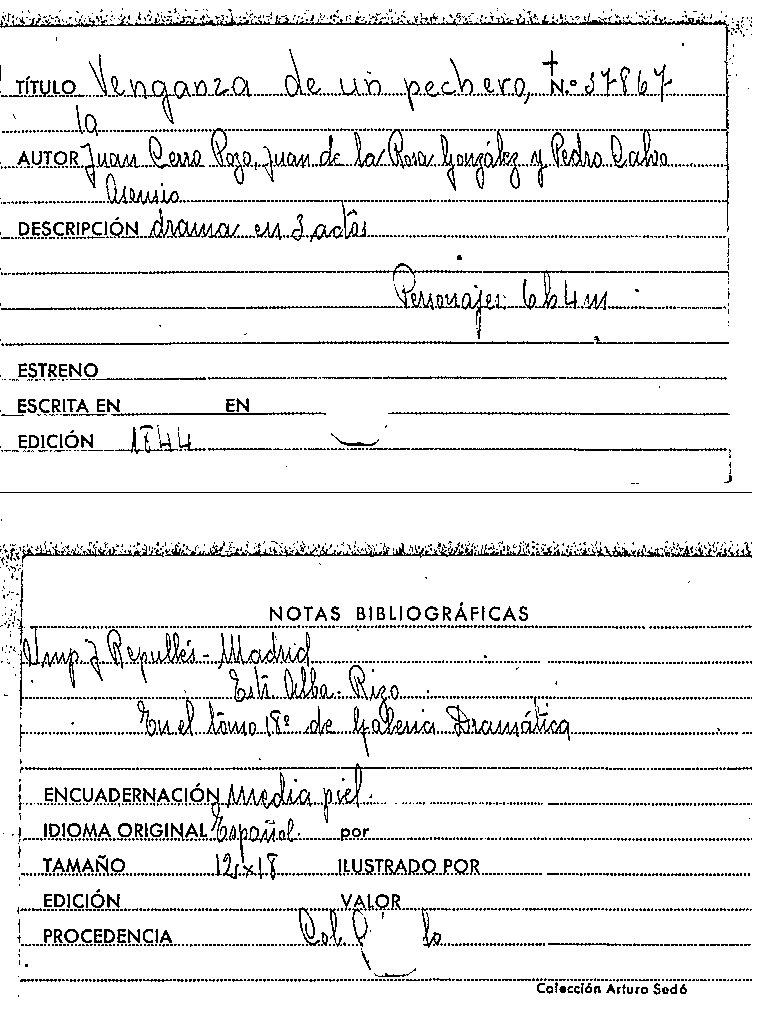 TÍTULO Venganza de un pechero, N.º 37867
la
AUTOR Juan Cerro Pozo, Juan de la Rosa González y Pedro Calvo
Asensio
DESCRIPCIÓN drama en 3 actos
Personajes: 6 h 4 m
ESTRENO
ESCRITA EN EN
EDICIÓN 1844
NOTAS BIBLIOGRÁFICAS
Imp. J. Repullés - Madrid
Edit. Alba. Rizo
En el tomo 18º de Galeria Dramática
ENCUADERNACIÓN Media piel.
IDIOMA ORIGINAL Español. por
TAMAÑO ILUSTRADO POR
EDICIÓN VALOR
PROCEDENCIA Col.
Colección Arturo Sedó